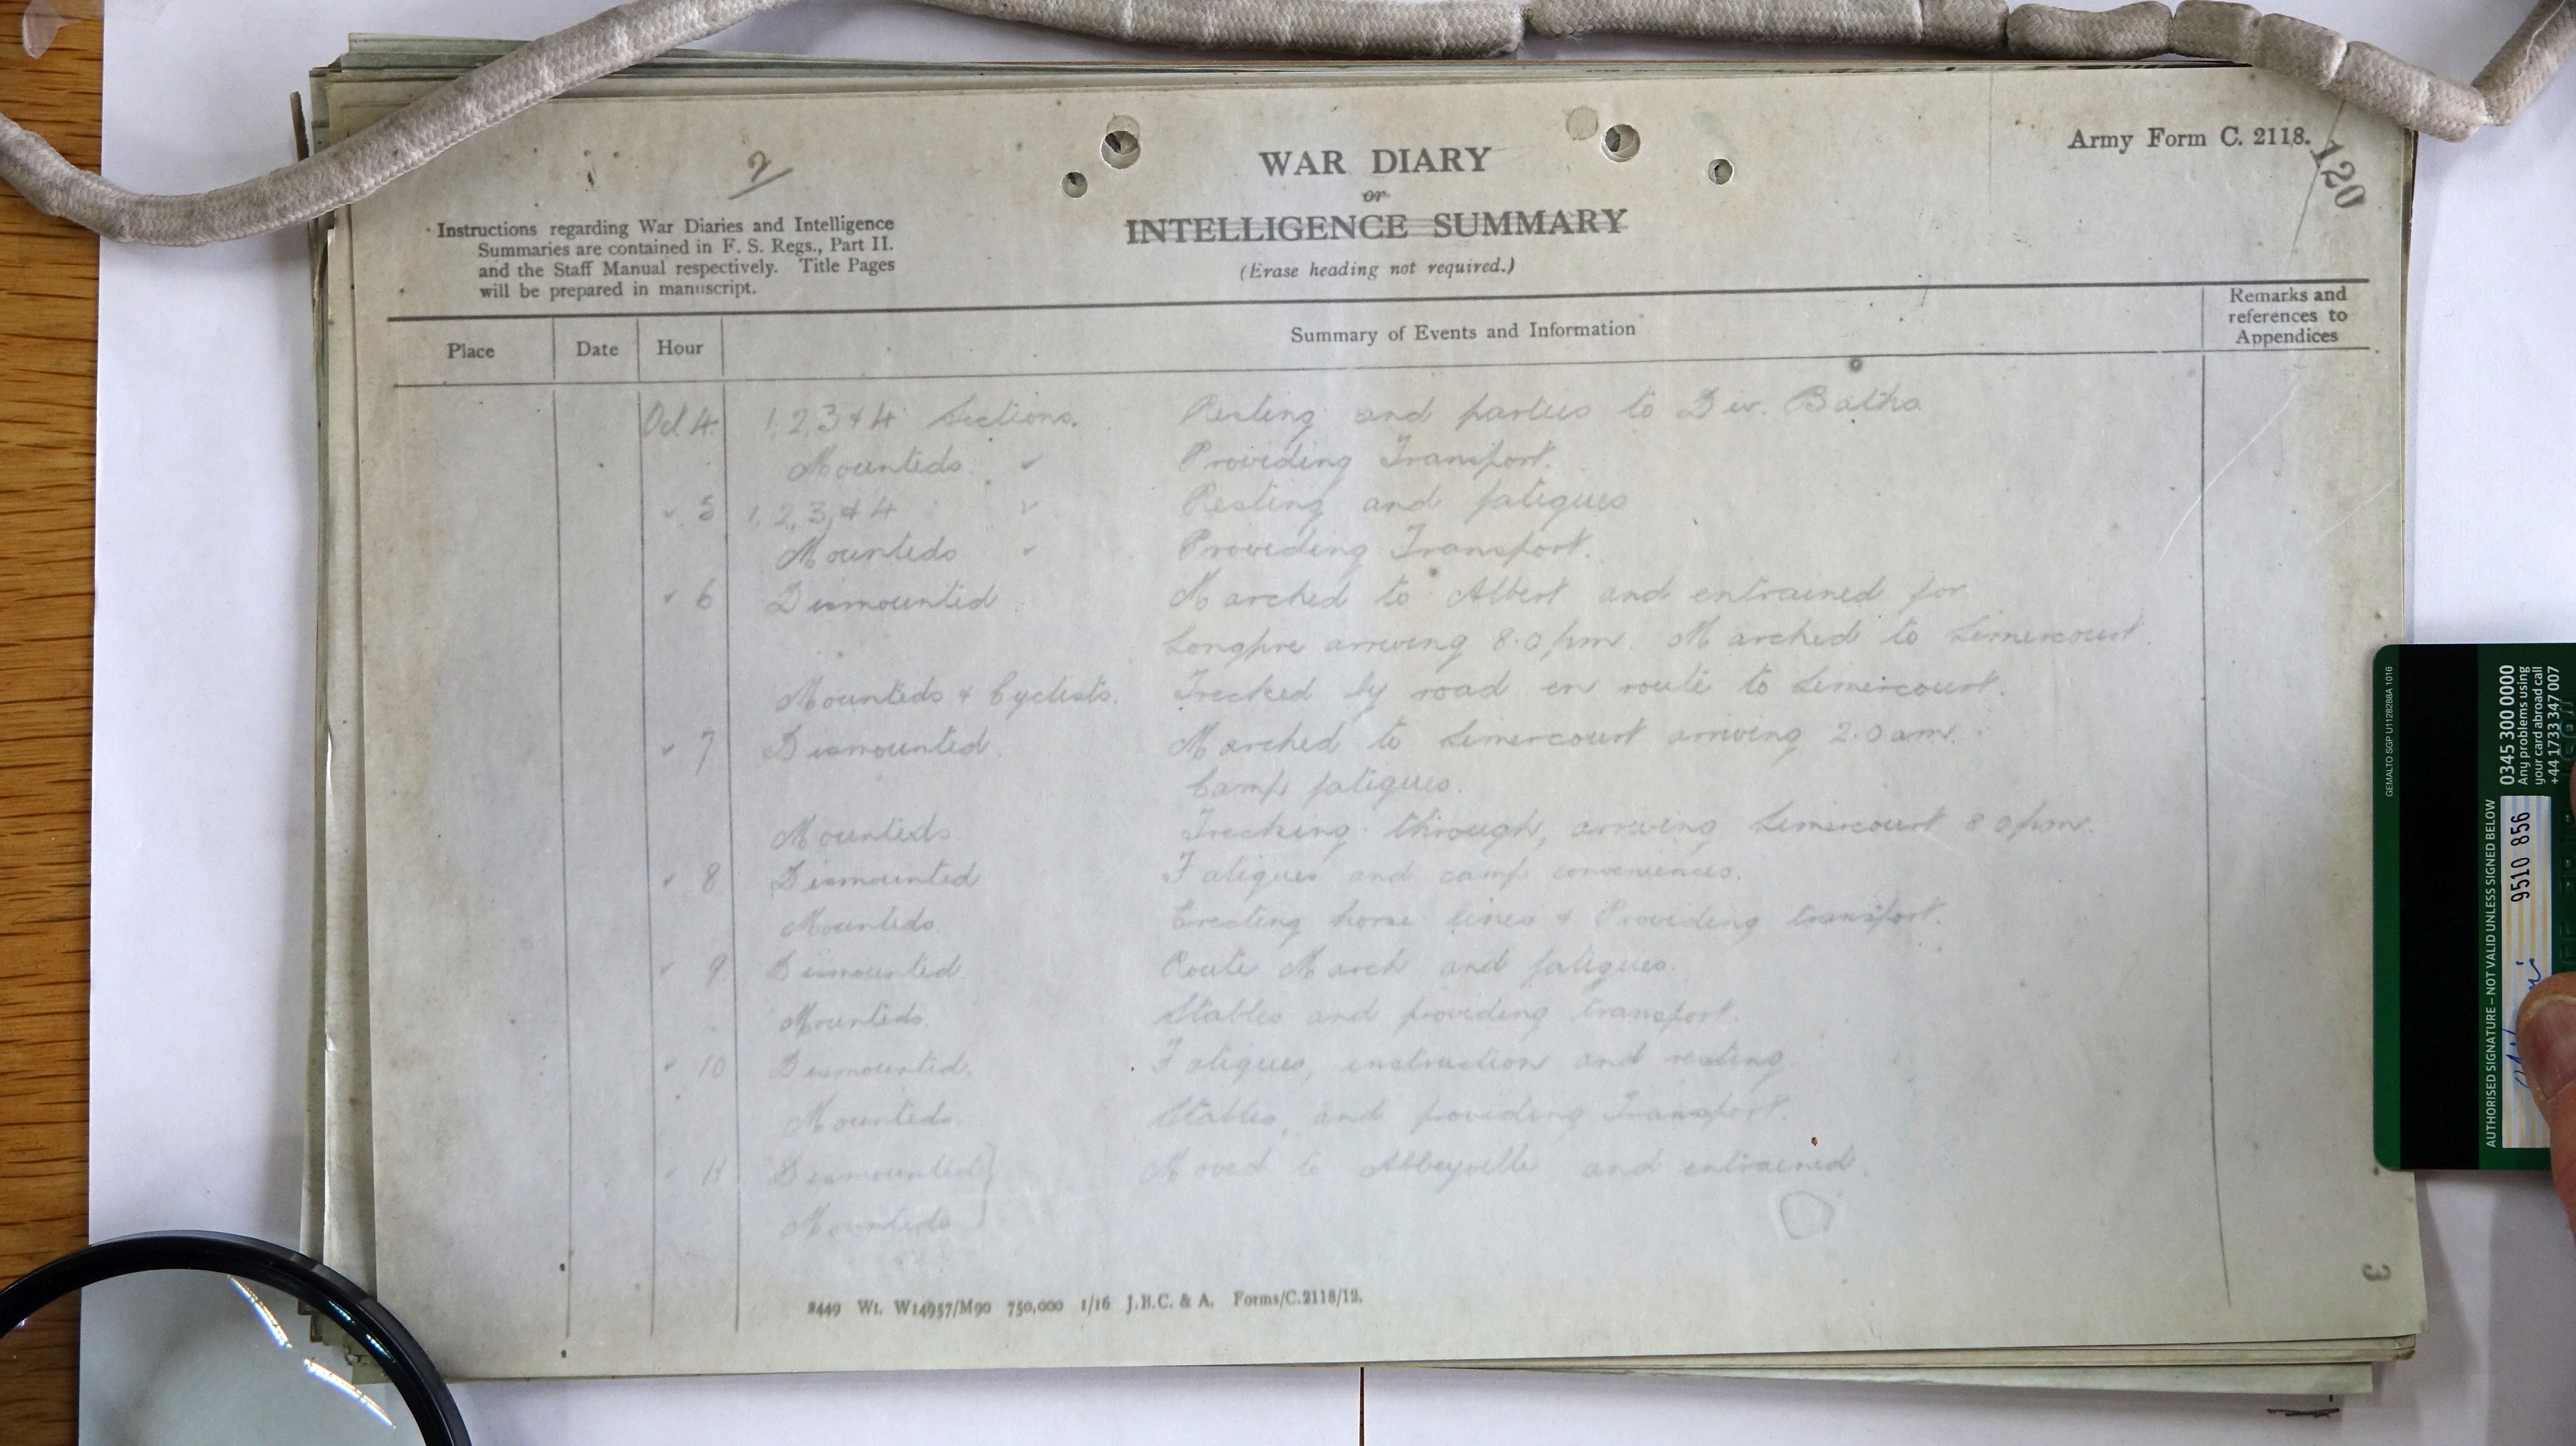 2
WAR DIARY
or
INTELLIGENCE SUMMARY
(Erase heading not required.)
Army Form C. 2118.
120
Instructions regarding War Diaries and Intelligence
Summaries are contained in F. S. Regs., Part II.
and the Staff Manual respectively. Title Pages
will be prepared in manuscript.
Place Date Hour Summary of Events and Information Remarks and
references to
Appendices
Oct 4. 1, 2, 3 & 4 Sections. Resting and parties to Div. Baths
Mounteds. " Providing Transport.
" 5 1, 2, 3, & 4 " Resting and fatigues
Mounteds " Providing Transport.
" 6 Dismounted. Marched to Albert and entrained for
Longpre arriving 8.0 pm. Marched to Limercourt.
Mounteds & Cyclists. Trecked by road en route to Limercourt.
" 7 Dismounted. Marched to Limercourt arriving 2.0 am.
Camp fatigues.
Mounteds. Trecking through, arriving Limercourt 8.0 pm.
" 8 Dismounted Fatigues and camp conveniences.
Mounteds. Erecting horse lines & Providing transport.
" 9. Dismounted. Route March and fatigues.
Mounteds. Stables and providing transport.
" 10 Dismounted. Fatigues, instruction and resting
Mounteds. Stables, and providing Transport
" 11 Dismounted } Moved to Abbeyville and entrained.
Mounteds }
2449 Wt. W14957/M90 750,000 1/16 J.B.C. & A. Forms/C.2118/12.
3
GEMALTO SGP U1128288A 1016
0345 300 0000
Any problems using
your card abroad call
+44 1733 347 007
AUTHORISED SIGNATURE – NOT VALID UNLESS SIGNED BELOW
9510 856